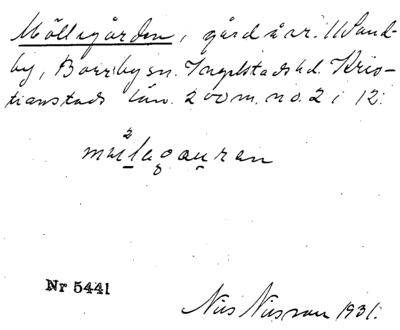 Mölligården, gård å nr. 11 Sand-
by, Borrby sn. Ingelstads hd. Kris-
tianstads län. 200 m. no. 2 i 12.
Nr 5441
Nils Nilsson 1931.